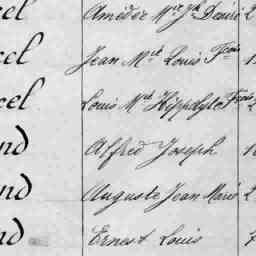 cel Amédée Mie Jh Désiré 2
cel Jean Mel Louis Fçois 1
cel Louis Mel Hippolyte Fçois
nd Alfred Joseph 1
nd Auguste Jean Marie 2
nd Ernest Louis 7